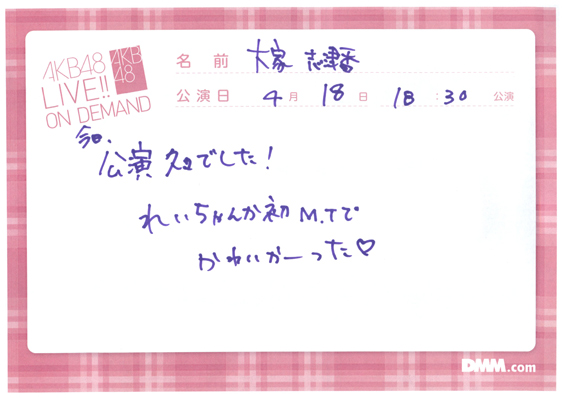 AKB48
LIVE!!
ON DEMAND
AKB
48
名前 大家 志津香
公演日 4月 18日 18:30 公演
今日、
公演久々でした!
れいちゃんが初M.Tで
かわいかーった♡
DMM.com